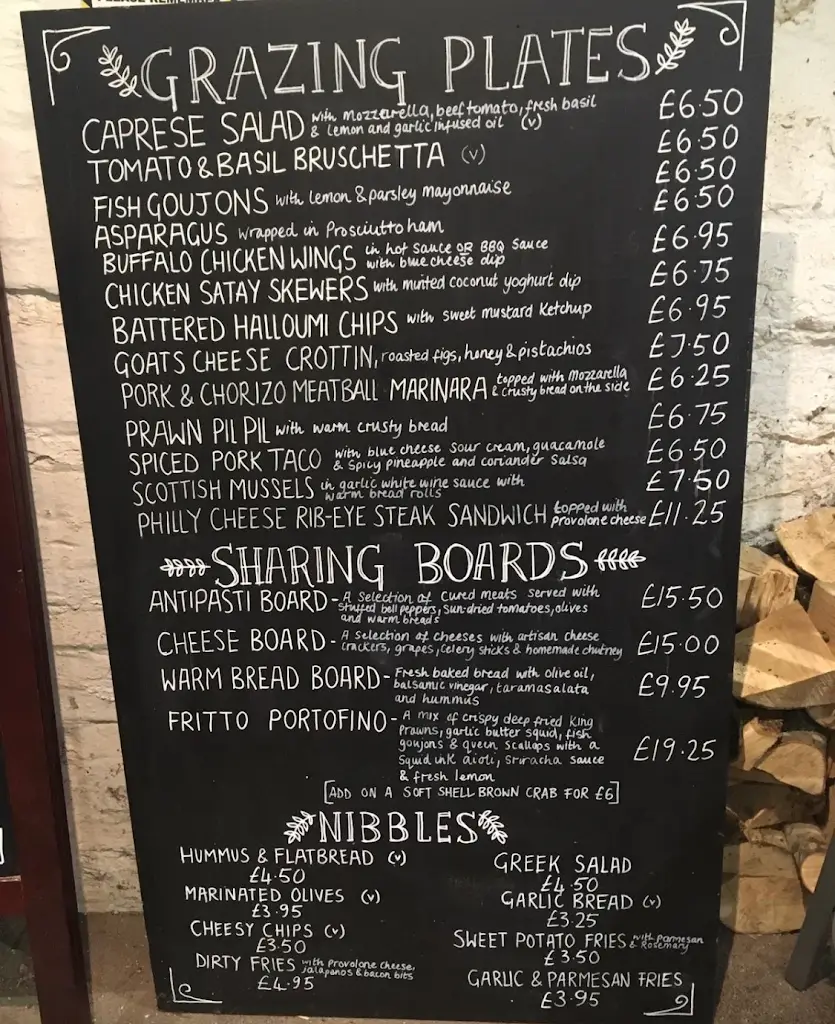 GRAZING PLATES
CAPRESE SALAD with mozzarella, beef tomato, fresh basil & lemon and garlic infused oil (v) £6.50
TOMATO & BASIL BRUSCHETTA (v) £6.50
FISH GOUJONS with lemon & parsley mayonnaise £6.50
ASPARAGUS wrapped in Prosciutto ham £6.50
BUFFALO CHICKEN WINGS in hot sauce OR BBQ sauce with blue cheese dip £6.95
CHICKEN SATAY SKEWERS with minted coconut yoghurt dip £6.75
BATTERED HALLOUMI CHIPS with sweet mustard ketchup £6.95
GOATS CHEESE CROTTIN, roasted figs, honey & pistachios £7.50
PORK & CHORIZO MEATBALL MARINARA topped with Mozzarella & crusty bread on the side £6.25
PRAWN PIL PIL with warm crusty bread £6.75
SPICED PORK TACO with blue cheese sour cream, guacamole & spicy pineapple and coriander salsa £6.50
SCOTTISH MUSSELS in garlic white wine sauce with warm bread rolls £7.50
PHILLY CHEESE RIB-EYE STEAK SANDWICH topped with provolone cheese £11.25
SHARING BOARDS
ANTIPASTI BOARD - A selection of cured meats served with £15.50
stuffed bell peppers, sun-dried tomatoes, olives
and warm breads
CHEESE BOARD - A selection of cheeses with artisan cheese £15.00
crackers, grapes, celery sticks & homemade chutney
WARM BREAD BOARD - Fresh baked bread with olive oil, £9.95
balsamic vinegar, taramasalata
and hummus
FRITTO PORTOFINO - A mix of crispy deep fried king
prawns, garlic butter squid, fish
goujons & queen scallops with a £19.25
squid ink aioli, sriracha sauce
& fresh lemon
[ADD ON A SOFT SHELL BROWN CRAB FOR £6]
NIBBLES
HUMMUS & FLATBREAD (v)
£4.50
MARINATED OLIVES (v)
£3.95
CHEESY CHIPS (v)
£3.50
DIRTY FRIES with provolone cheese, jalapenos & bacon bits
£4.95
GREEK SALAD
£4.50
GARLIC BREAD (v)
£3.25
SWEET POTATO FRIES with parmesan & Rosemary
£3.50
GARLIC & PARMESAN FRIES
£3.95